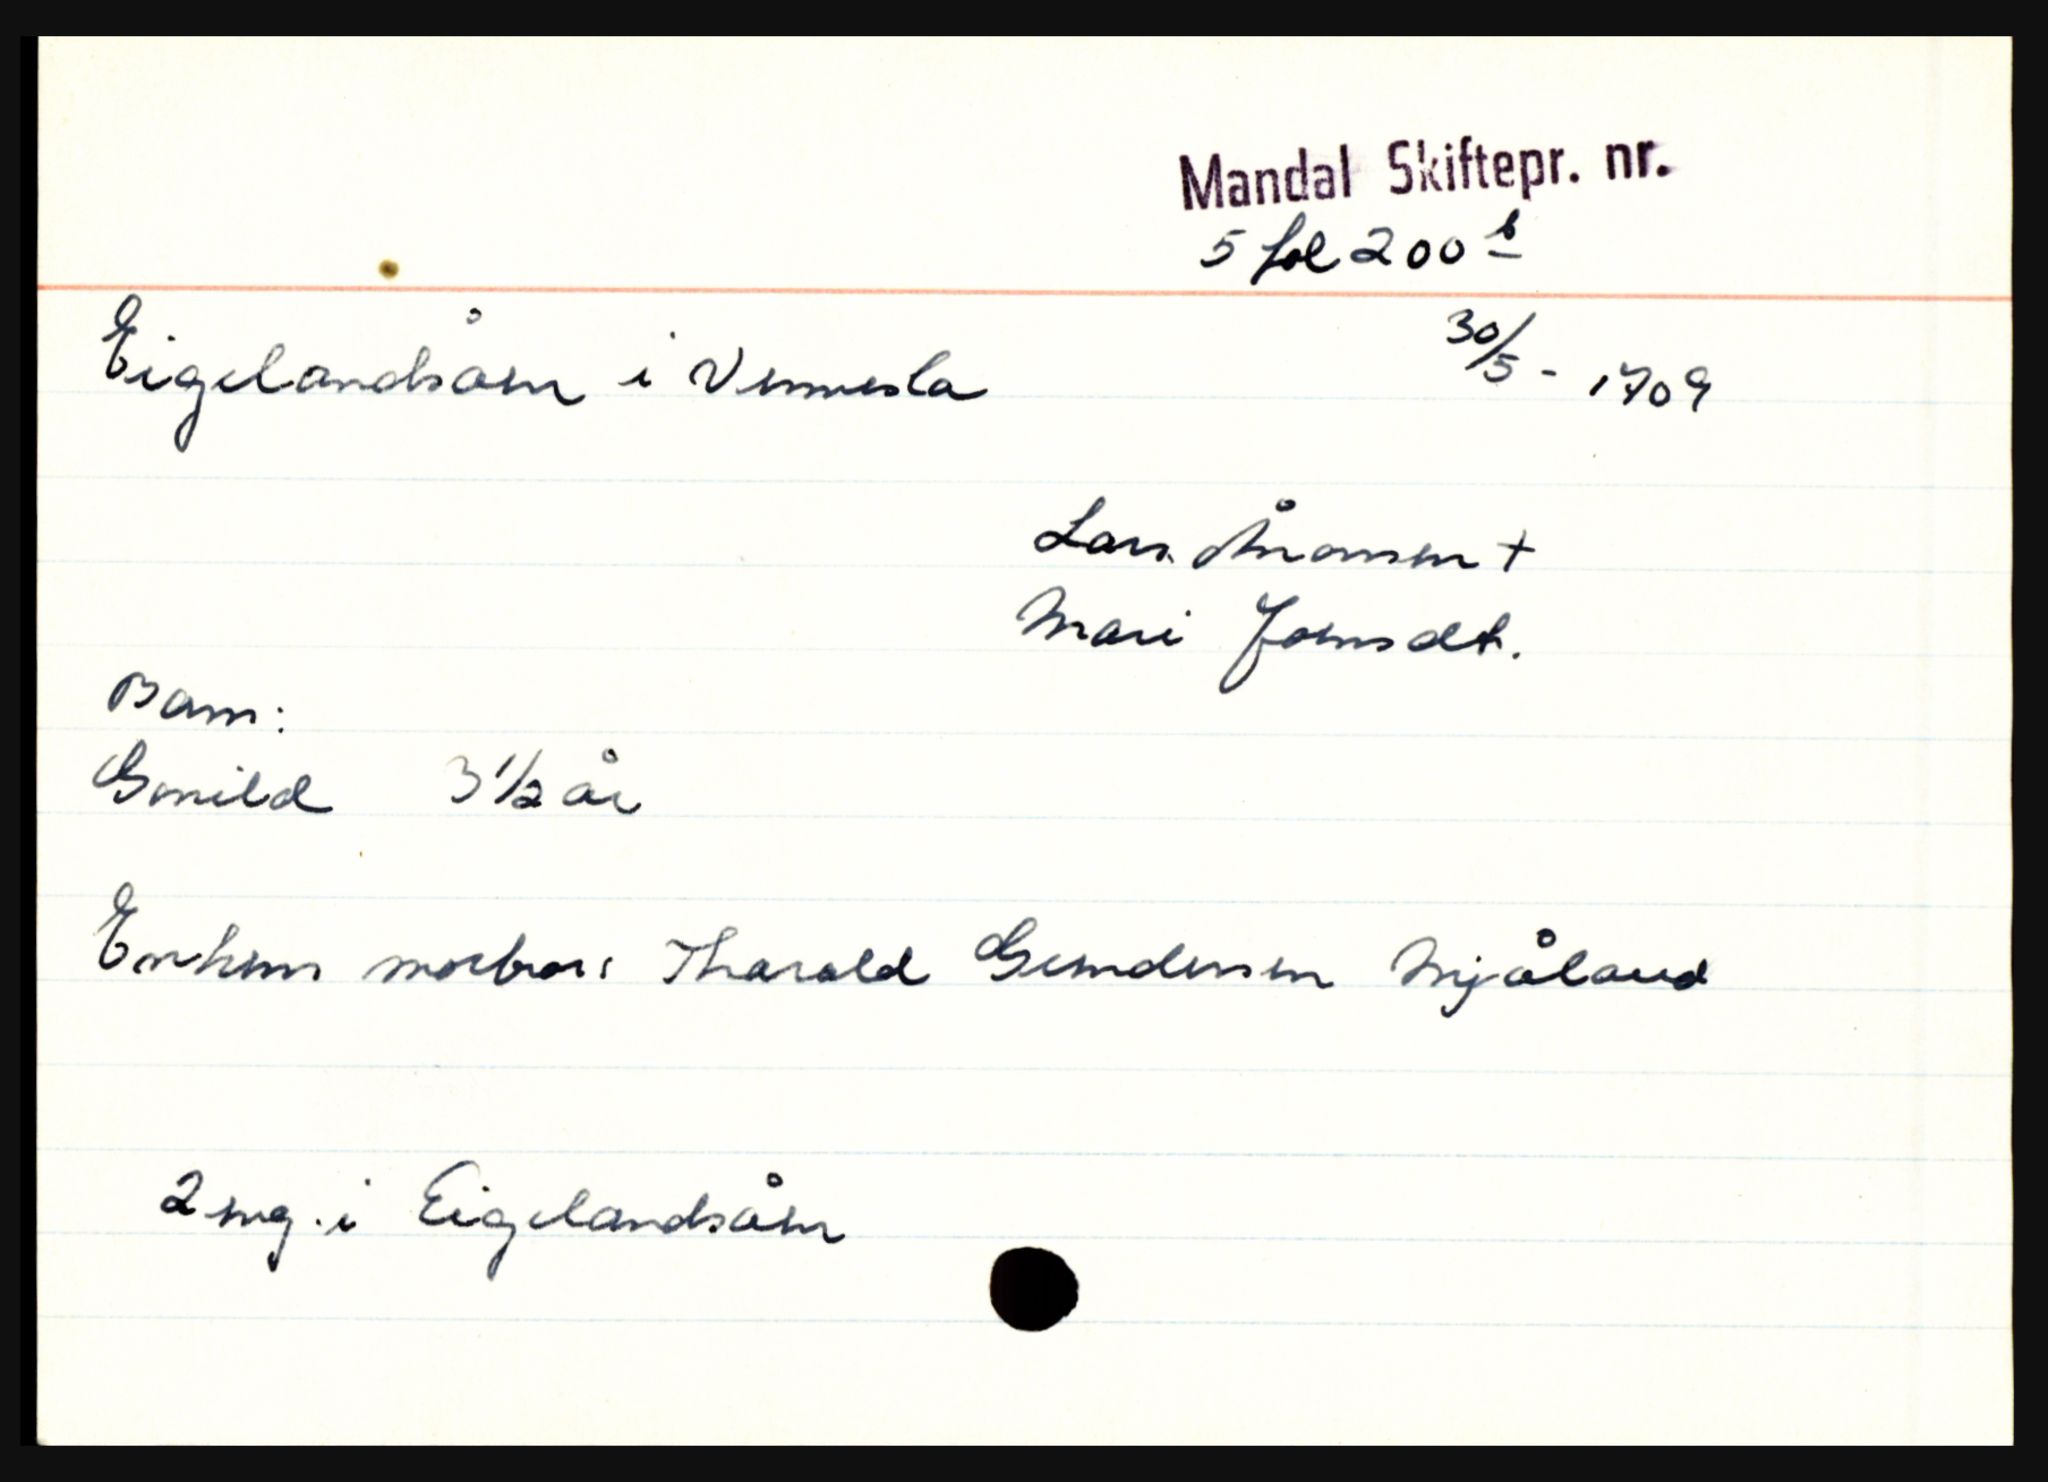 Mandal Skiftepr. nr.
5 fol 200 b
Eigelandsåen i Vennesla 30/5 - 1709
Lars Ånonsen +
Mari Joensdt.
Barn:
Gonild 3 1/2 år
Enkens morbror: Tharald Gundersen Mjåland
2 eng. i Eigelandsåen